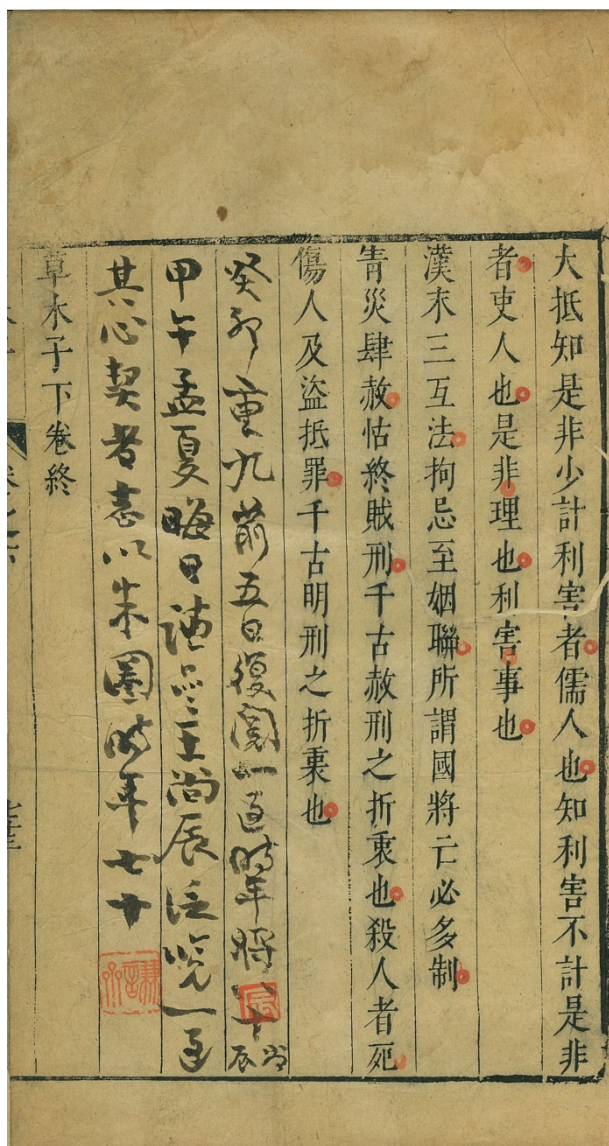 大抵知是非少計利害者儒人也知利害不計是非
者吏人也是非理也利害事也
漢末三互法拘忌至姻聯所謂國將亡必多制
眚災肆赦怙終賊刑千古赦刑之折衷也殺人者死
傷人及盜抵罪千古明刑之折衷也
癸卯重九前五日復閱一過時年將八十尚辰
甲午孟夏晦日謙叟王尚辰泛覽一過
其心契者志以朱圈時年七十
草木子下卷終